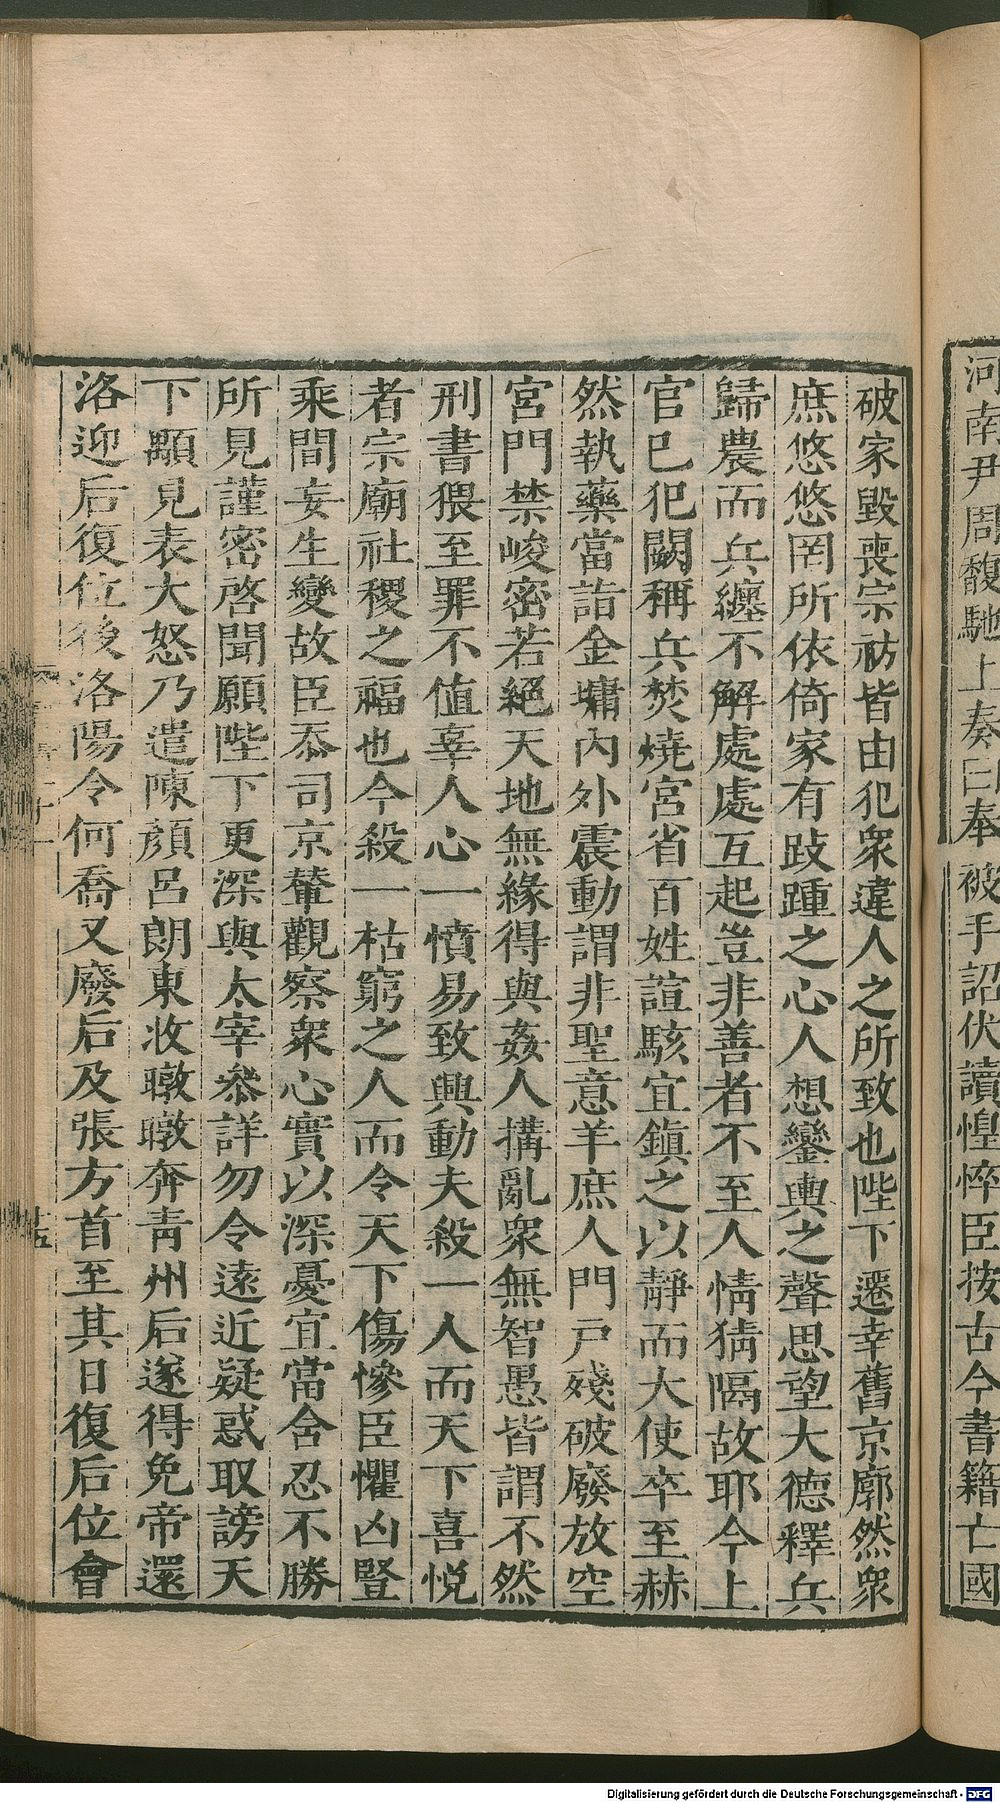 河南尹周馥馳上奏曰奉被手詔伏讀惶悴臣按古今書籍亡國
破家毀喪宗祊皆由犯衆違人之所致也陛下遷幸舊京廓然衆
庶悠悠罔所依倚家有跂踵之心人想鑾輿之聲思望大德釋兵
歸農而兵纏不解處處互起豈非善者不至人情猜隔故耶今上
官巳犯闕稱兵焚燒宮省百姓諠駭宜鎮之以靜而大使卒至赫
然執藥當詣金墉內外震動謂非聖意羊庶人門戸殘破廢放空
宮門禁峻密若絕天地無緣得與姦人搆亂衆無智愚皆謂不然
刑書猥至罪不值辜人心一憤易致興動夫殺一人而天下喜悅
者宗廟社稷之福也今殺一枯窮之人而令天下傷慘臣懼凶豎
乘間妄生變故臣忝司京輦觀察衆心實以深憂宜當舍忍不勝
所見謹密啓聞願陛下更深與太宰參詳勿令遠近疑惑取謗天
下顒見表大怒乃遣陳顏呂朗東收暾暾奔靑州后遂得免帝還
洛迎后復位後洛陽令何喬又廢后及張方首至其日復后位會
Digitalisierung gefördert durch die Deutsche Forschungsgemeinschaft - DFG